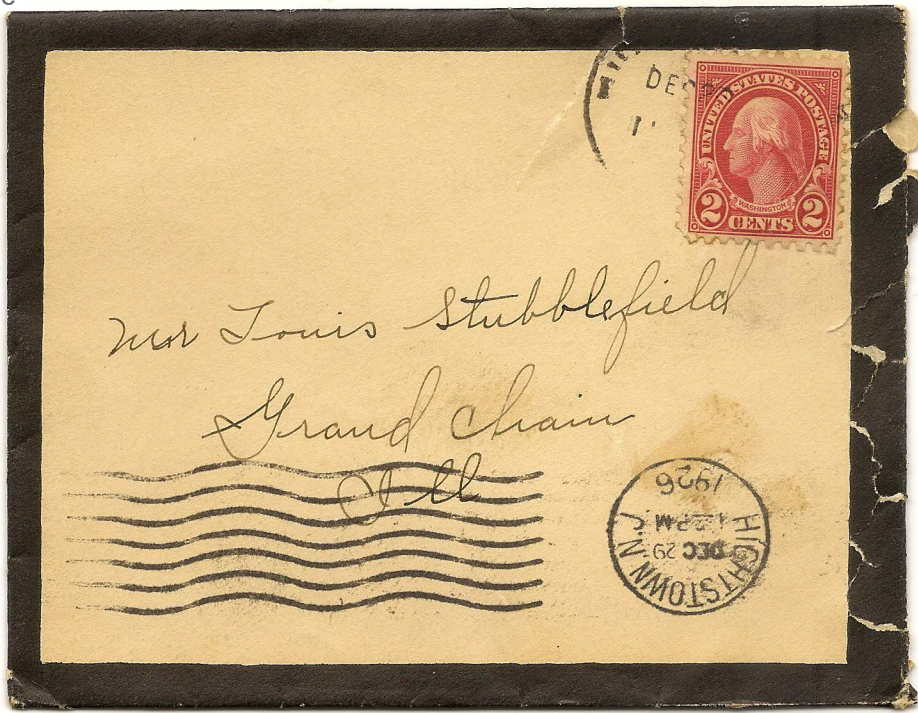 DEC
UNITED STATES POSTAGE
WASHINGTON
2 CENTS 2
Mr Louis Stubblefield
Grand Chain
Ill
HIGHTSTOWN N.J.
DEC 29
12 PM
1926